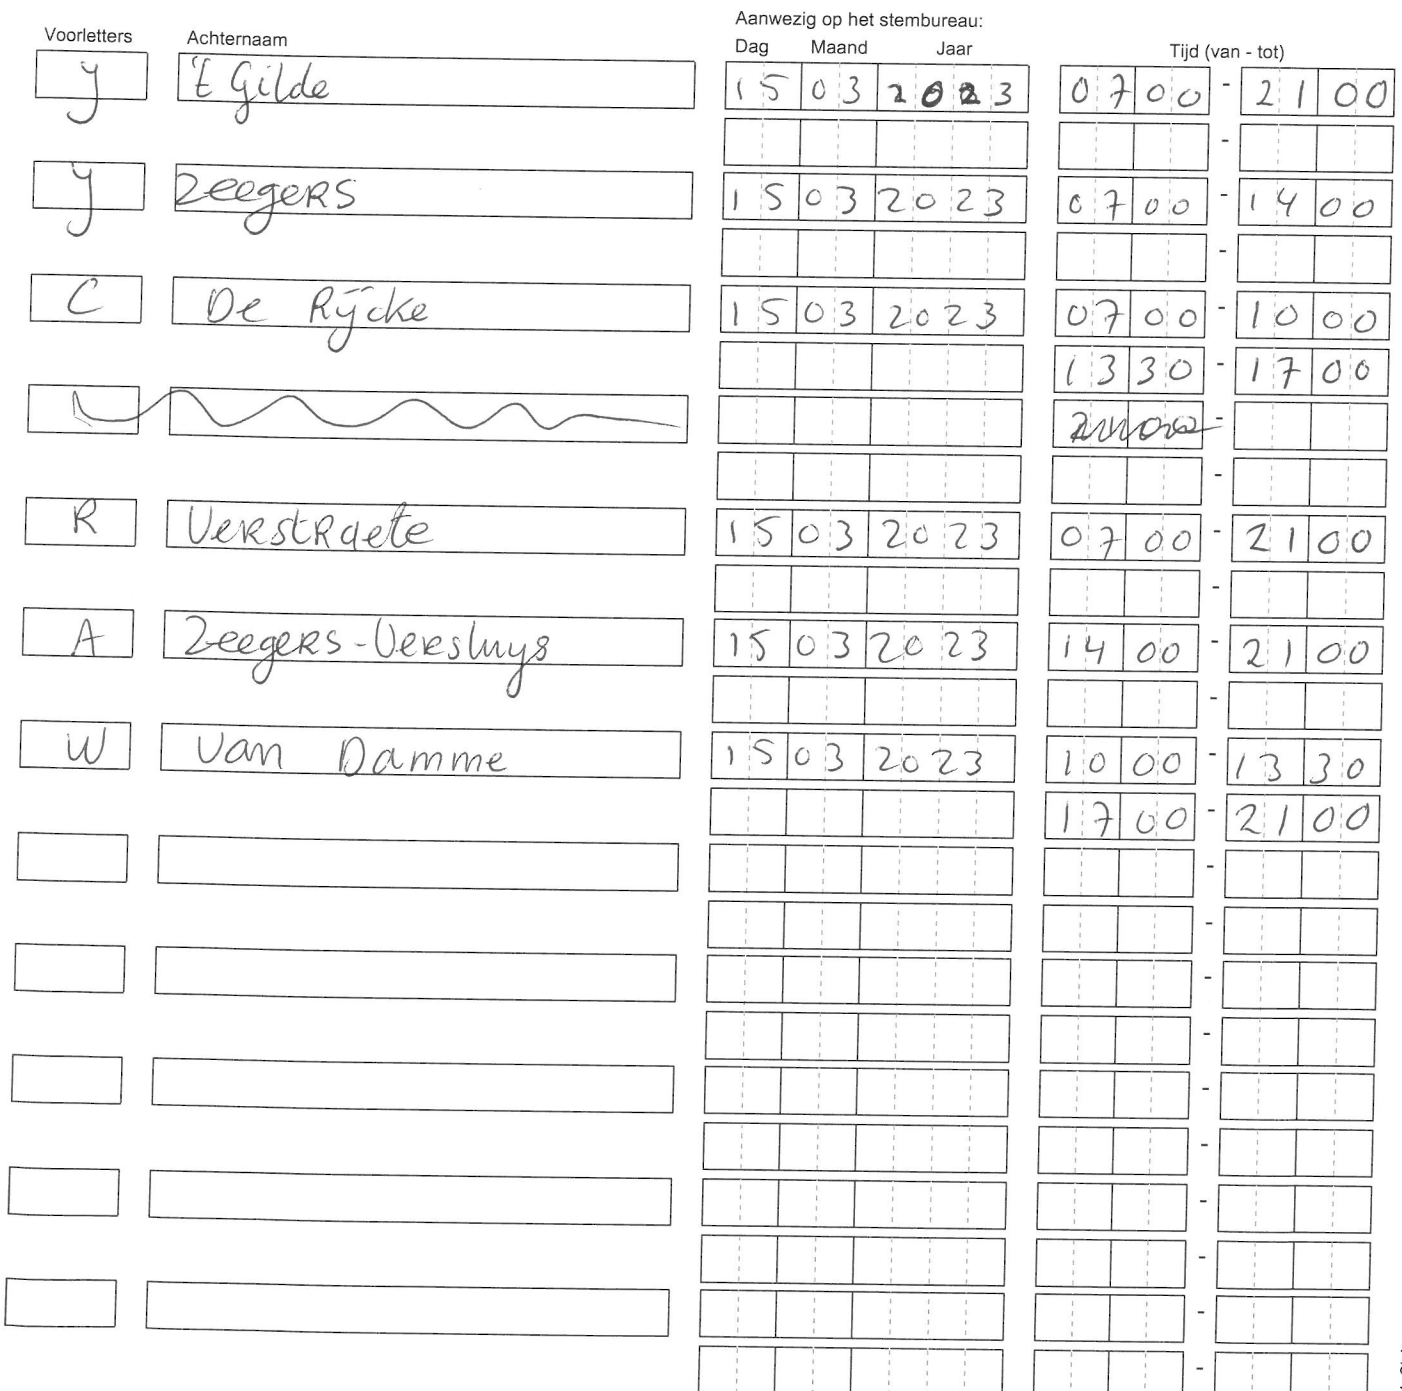 Aanwezig op het stembureau:
Voorletters Achternaam Dag Maand Jaar Tijd (van - tot)
J 't Gilde 15 03 2023 07 00 - 21 00
-
J Zeegers 15 03 2023 07 00 - 14 00
-
C De Rijcke 15 03 2023 07 00 - 10 00
13 30 - 17 00
-
-
R Verstraete 15 03 2023 07 00 - 21 00
-
A Zeegers-Versluys 15 03 2023 14 00 - 21 00
-
W van Damme 15 03 2023 10 00 - 13 30
17 00 - 21 00
-
-
-
-
-
-
-
-
-
-